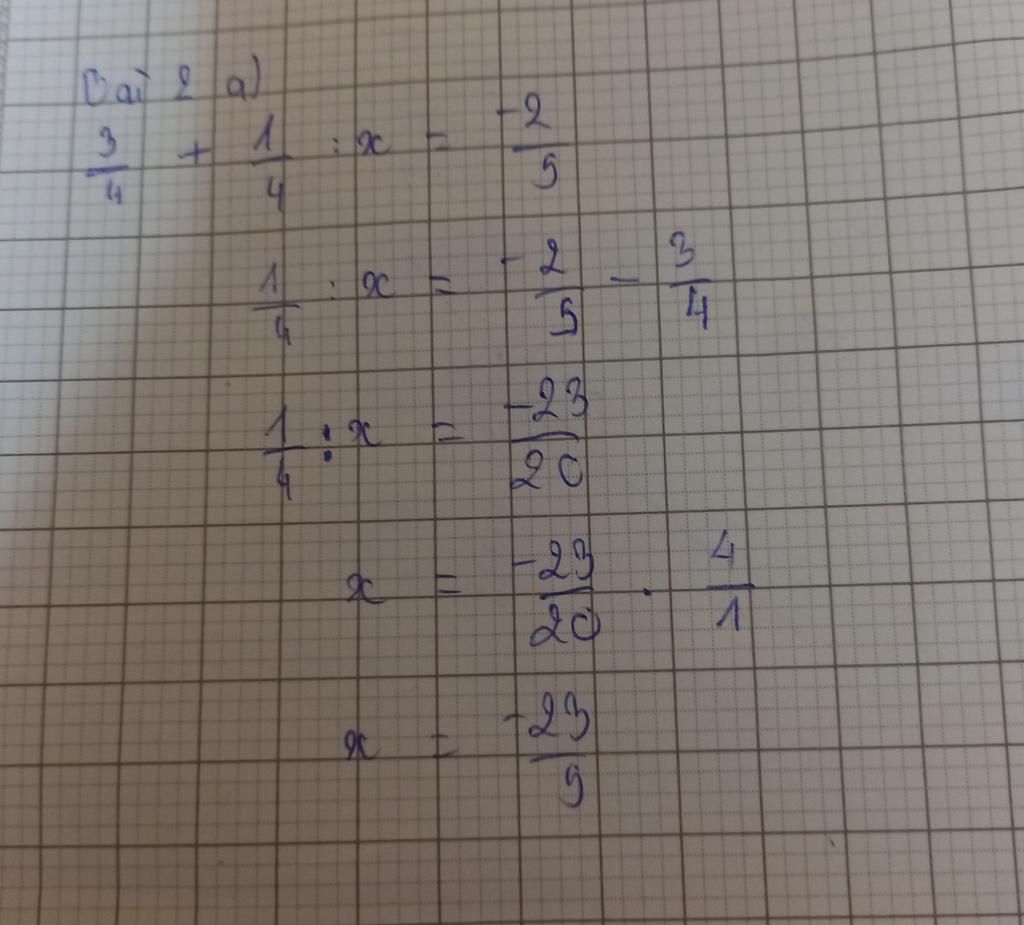 Bài 2 a)
3/4 + 1/4 : x = -2/5
1/4 : x = -2/5 - 3/4
1/4 : x = -23/20
x = -23/20 . 4/1
x = -23/5